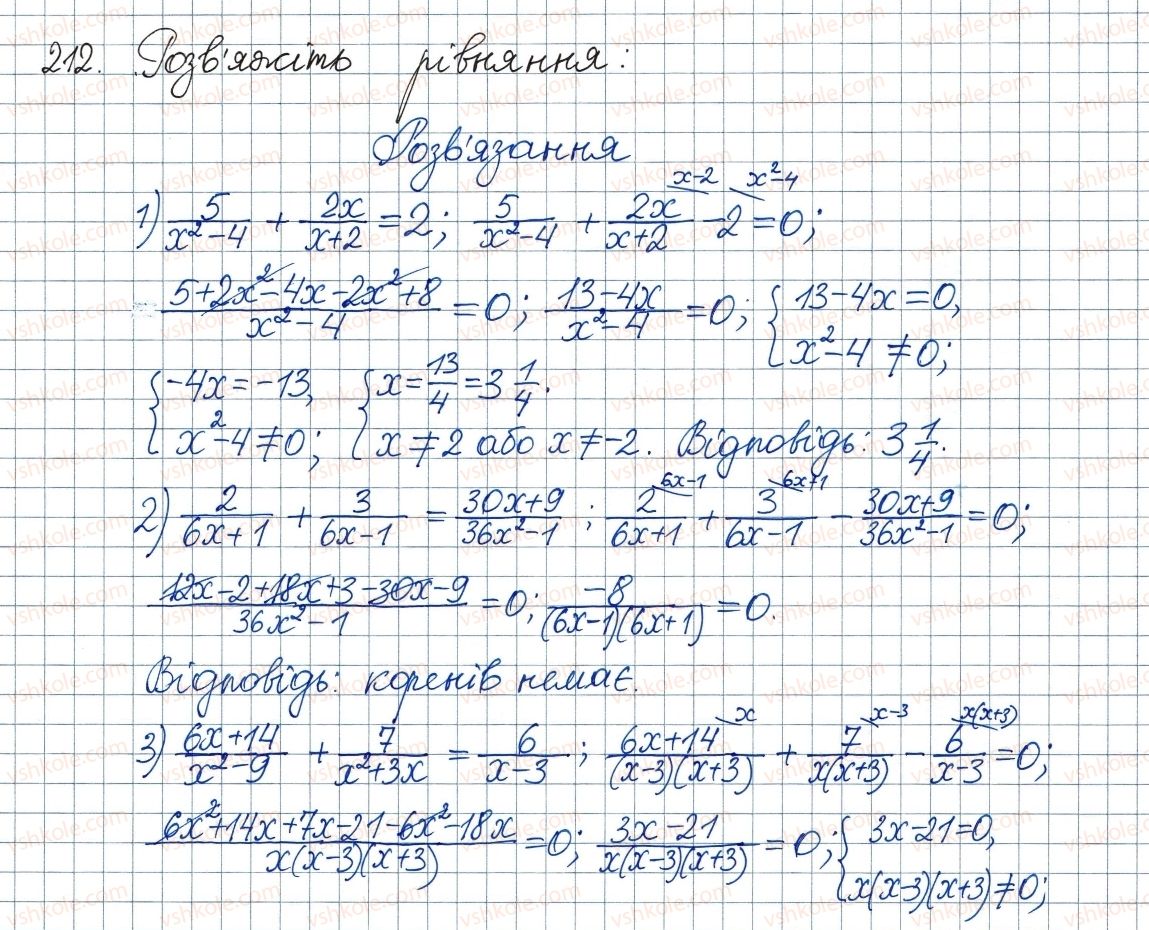 212. Розв'яжіть рівняння:
Розв'язання
1) 5/(x²-4) + 2x/(x+2) = 2; 5/(x²-4) + 2x/(x+2) ^(x-2) - 2 ^(x²-4) = 0;
(5+2x²-4x-2x²+8)/(x²-4) = 0; (13-4x)/(x²-4) = 0; { 13-4x=0, x²-4≠0;
{ -4x=-13, x²-4≠0; { x=13/4=3 1/4. x≠2 або x≠-2. Відповідь: 3 1/4.
2) 2/(6x+1) + 3/(6x-1) = (30x+9)/(36x²-1); 2/(6x+1) ^(6x-1) + 3/(6x-1) ^(6x+1) - (30x+9)/(36x²-1) = 0;
(12x-2+18x+3-30x-9)/(36x²-1) = 0; -8/((6x-1)(6x+1)) = 0.
Відповідь: коренів немає.
3) (6x+14)/(x²-9) + 7/(x²+3x) = 6/(x-3); (6x+14)/((x-3)(x+3)) ^(x) + 7/(x(x+3)) ^(x-3) - 6/(x-3) ^(x(x+3)) = 0;
(6x²+14x+7x-21-6x²-18x)/(x(x-3)(x+3)) = 0; (3x-21)/(x(x-3)(x+3)) = 0; { 3x-21=0, x(x-3)(x+3)≠0;